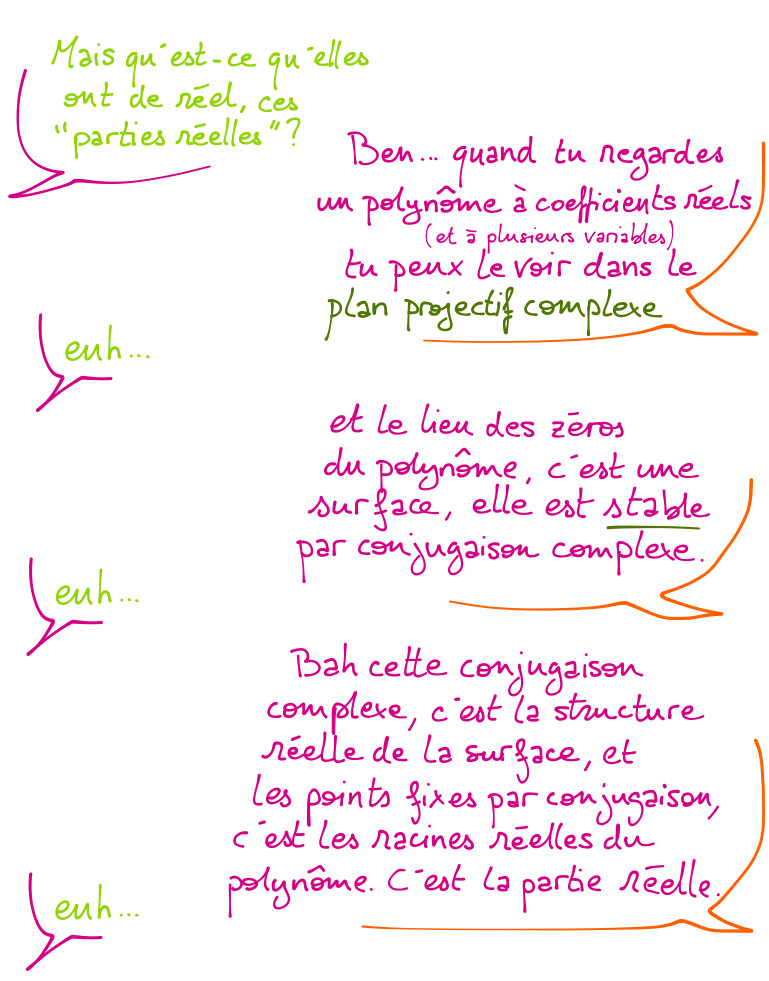 Mais qu'est-ce qu'elles
ont de réel, ces
"parties réelles"?
Ben... quand tu regardes
un polynôme à coefficients réels
(et à plusieurs variables)
tu peux le voir dans le
plan projectif complexe
euh...
et le lieu des zéros
du polynôme, c'est une
surface, elle est stable
par conjugaison complexe.
euh...
Bah cette conjugaison
complexe, c'est la structure
réelle de la surface, et
les points fixes par conjugaison,
c'est les racines réelles du
polynôme. C'est la partie réelle.
euh...